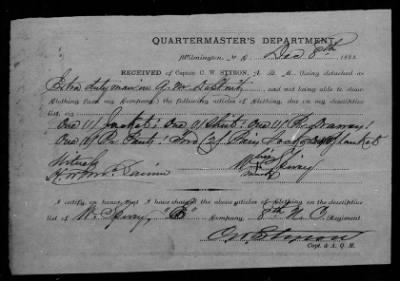 QUARTERMASTER'S DEPARTMENT,
Wilmington, N. C. Dec 8th 186
RECEIVED of Captain C. W. STYRON, A. Q. M., (being detached as
Extra duty man in Q. M. Dept
and not being able to draw
Clothing from my Company,) the following articles of Clothing, due on my descriptive
list, viz
One (1) Jacket; One (1) Shirt; One (1) Pr Drawers;
One (1) Pr Pants; Two (2) Pairs Socks Blanket
Witness
his
W. X Spivey
mark
I certify, on honor, that I have charged the above articles of Clothing on the descriptive
list of W. Spivey, "B" Company, 8th N. C. Regiment
C W Styron
Capt. & A. Q. M.